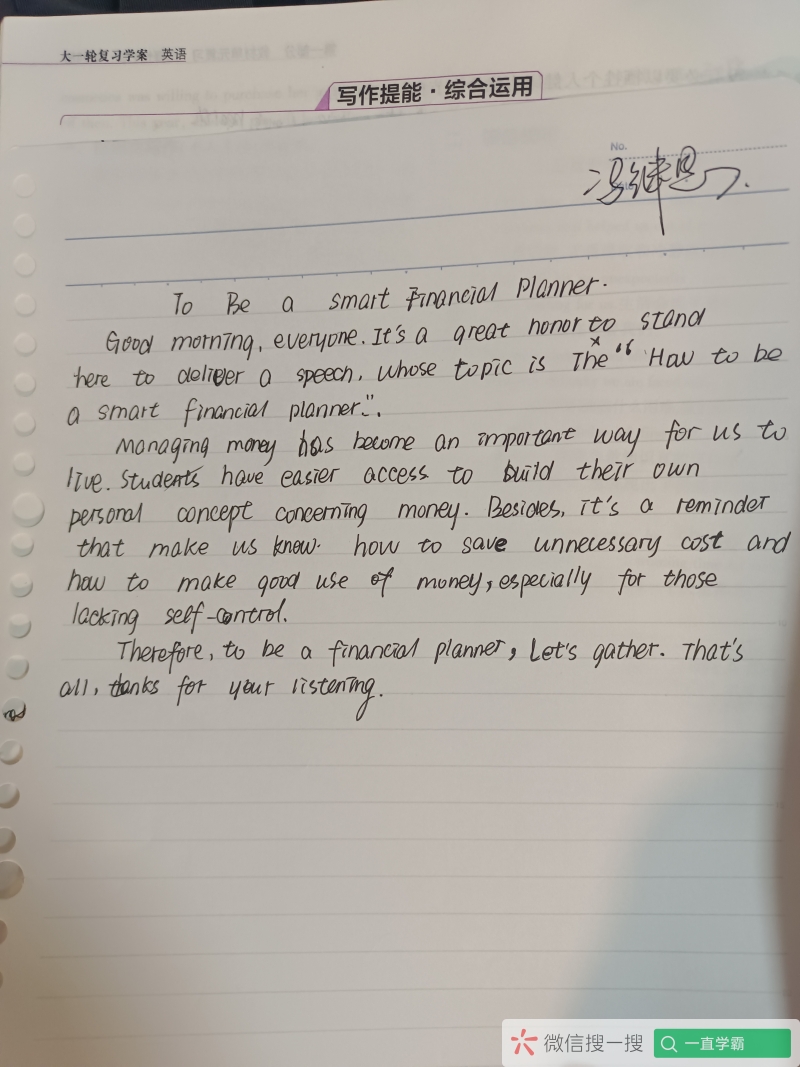 大一轮复习学案 英语
写作提能·综合运用
No.
To Be a smart Financial Planner.
Good morning, everyone. It's a great honor to stand
here to deliver a speech, whose topic is The "How to be
a smart financial planner.".
Managing money has become an important way for us to
live. Students have easier access to build their own
personal concept concerning money. Besides, it's a reminder
that make us know. how to save unnecessary cost and
how to make good use of money, especially for those
lacking self-control.
Therefore, to be a financial planner, Let's gather. That's
all, thanks for your listening.
微信搜一搜 一直学霸